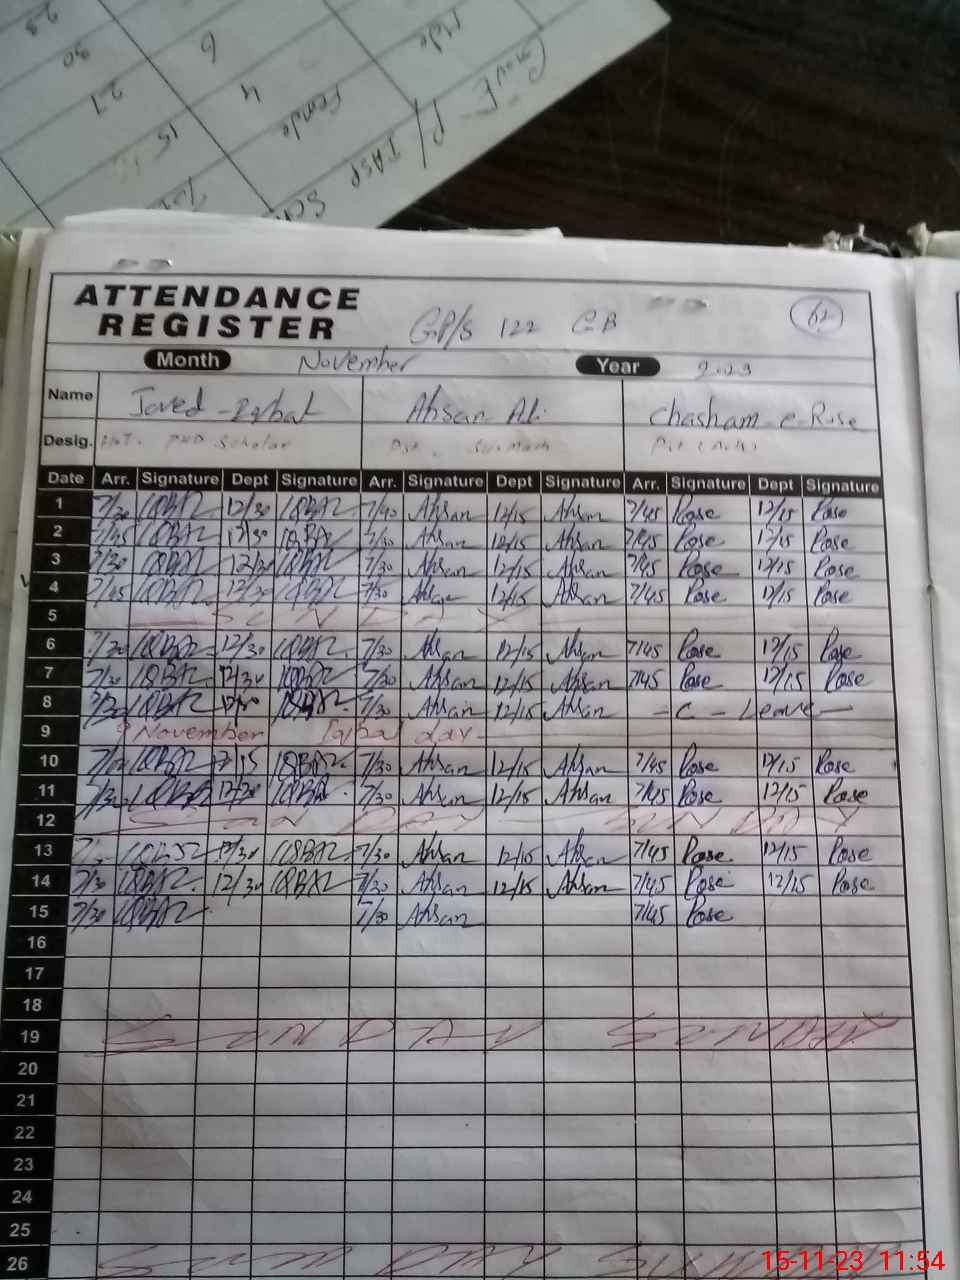 23
30
6
Male
27
4
Female
15
P/ TASP
ATTENDANCE
REGISTER GP/S 122 GB 62
Month November Year 2023
Name Javed Iqbal Ahsan Ali Chasham-e-Rose
Desig. PHD Scholar
Date Arr. Signature Dept Signature Arr. Signature Dept Signature Arr. Signature Dept Signature
1 7/30 IQBAL 12/30 IQBAL 7/40 Ahsan 12/15 Ahsan 7/45 Rose 12/15 Rose
2 7/45 IQBAL 12/30 IQBAL 7/30 Ahsan 12/15 Ahsan 7/45 Rose 12/15 Rose
3 7/30 IQBAL 12/30 IQBAL 7/30 Ahsan 12/15 Ahsan 7/45 Rose 12/15 Rose
4 7/45 IQBAL 12/30 IQBAL 7/30 Ahsan 12/15 Ahsan 7/45 Rose 12/15 Rose
5 SUNDAY
6 7/30 IQBAL 12/30 IQBAL 7/30 Ahsan 12/15 Ahsan 7/45 Rose 12/15 Rose
7 7/30 IQBAL 12/30 IQBAL 7/30 Ahsan 12/15 Ahsan 7/45 Rose 12/15 Rose
8 7/30 IQBAL IQBAL 7/30 Ahsan 12/15 Ahsan - C - Leave -
9 9 November Iqbal day
10 IQBAL IQBAL 7/30 Ahsan 12/15 Ahsan 7/45 Rose 12/15 Rose
11 7/30 IQBAL 12/30 IQBAL 7/30 Ahsan 12/15 Ahsan 7/45 Rose 12/15 Rose
12 SUNDAY SUNDAY
13 IQBAL 12/30 IQBAL 7/30 Ahsan 12/15 Ahsan 7/45 Rose 12/15 Rose
14 7/30 IQBAL 12/30 IQBAL 7/30 Ahsan 12/15 Ahsan 7/45 Rose 12/15 Rose
15 7/30 IQBAL 7/30 Ahsan 7/45 Rose
16
17
18
19 SUNDAY SUNDAY
20
21
22
23
24
25
26 SUNDAY SUNDAY
15-11-23 11:54